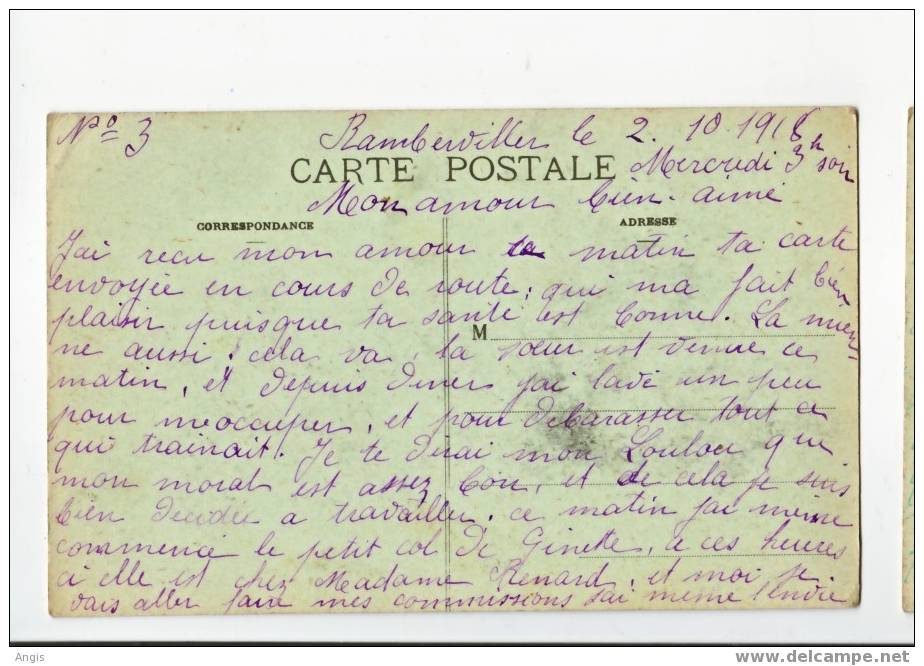 No 3 Rambervillers le 2. 10 1918
CARTE POSTALE Mercredi 3h soir
Mon amour bien-aimé
CORRESPONDANCE ADRESSE
J'ai recu mon amour ce matin ta carte
envoyée en cours de route, qui ma fait bien
plaisir puisque ta santé est bonne. La mien-
M
ne aussi. cela va, ta sœur est venue ce
matin, et depuis diner j'ai lavé un peu
pour m'occuper, et pour débarasser tout ce
qui trainait. Je te dirai mon Loulou que
mon moral est assez bon, et de cela je suis
bien decidée a travailler. ce matin j'ai même
commencé le petit col de Ginette, a ces heures
ci elle est chez Madame Renard, et moi je
vais aller faire mes commissions j'ai même l'envie
Angis
www.delcampe.net